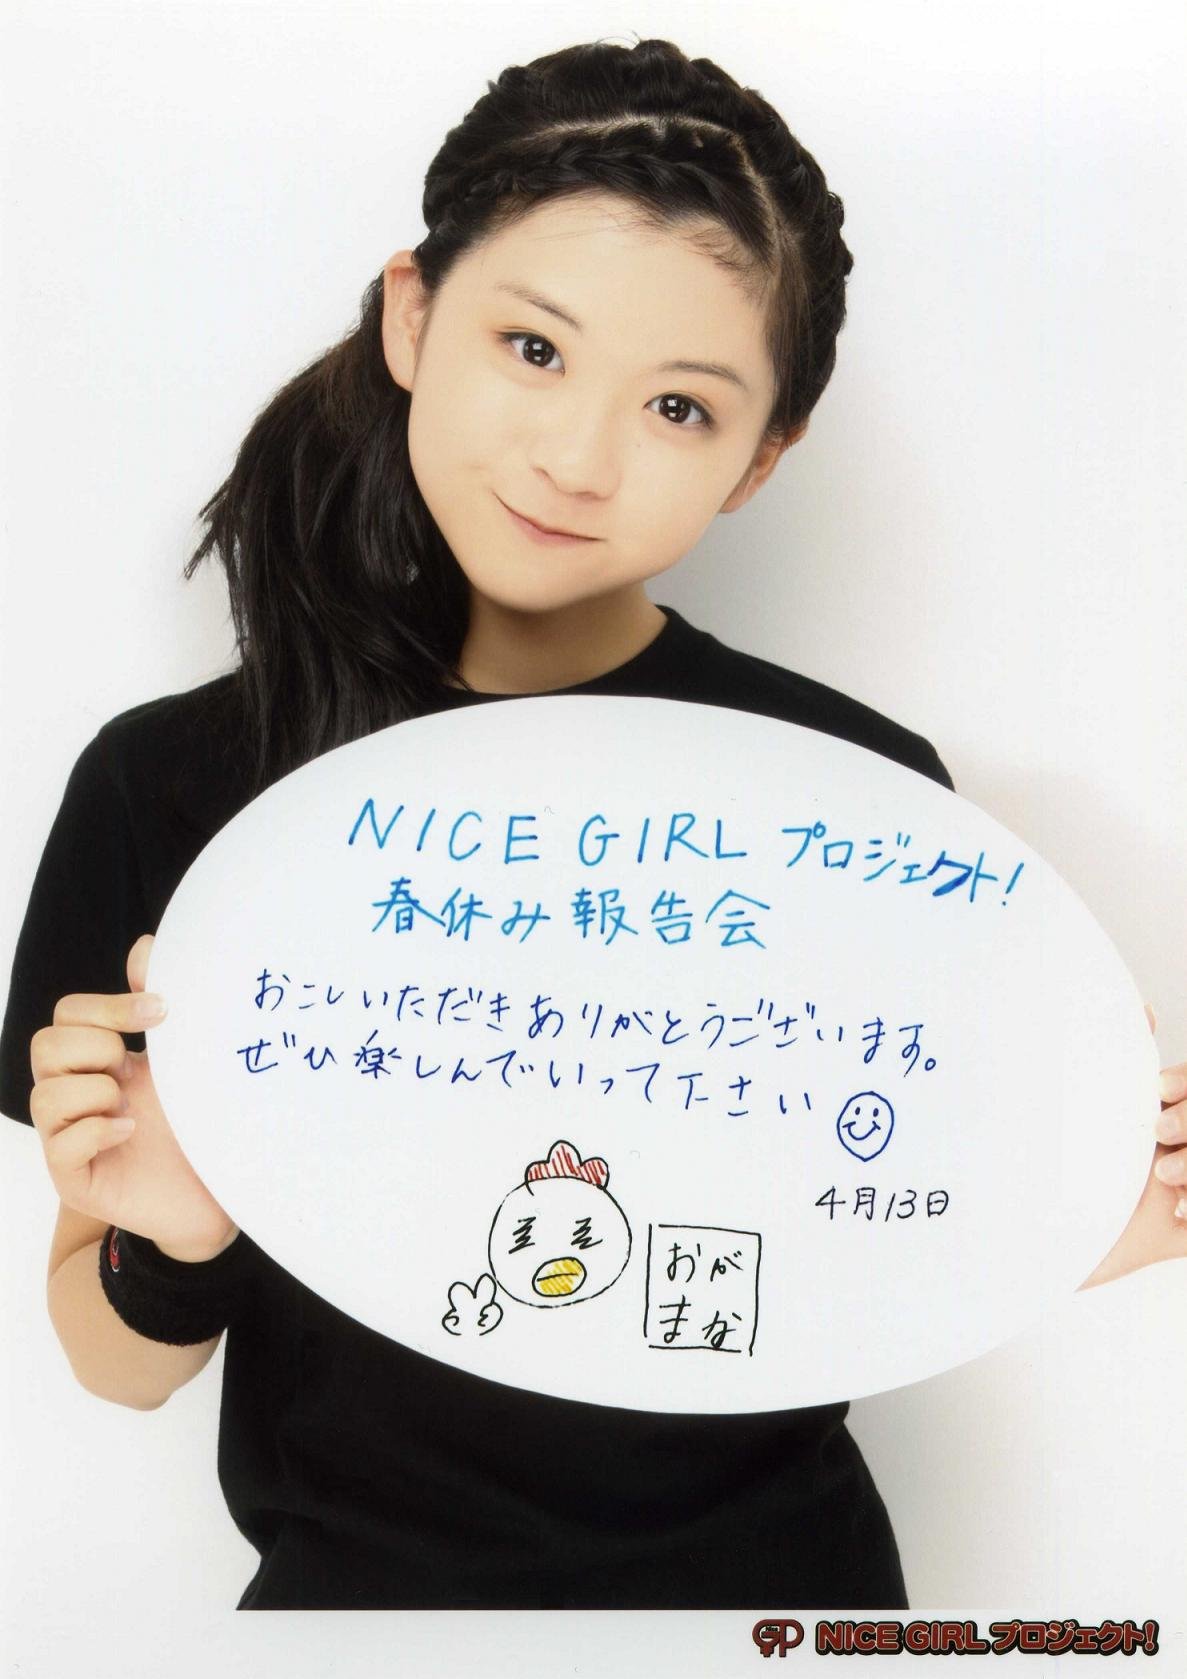 NICE GIRL プロジェクト!
春休み報告会
おこしいただきありがとうございます。
ぜひ楽しんでいって下さい
4月13日
おが
まな
NICE GIRL プロジェクト!